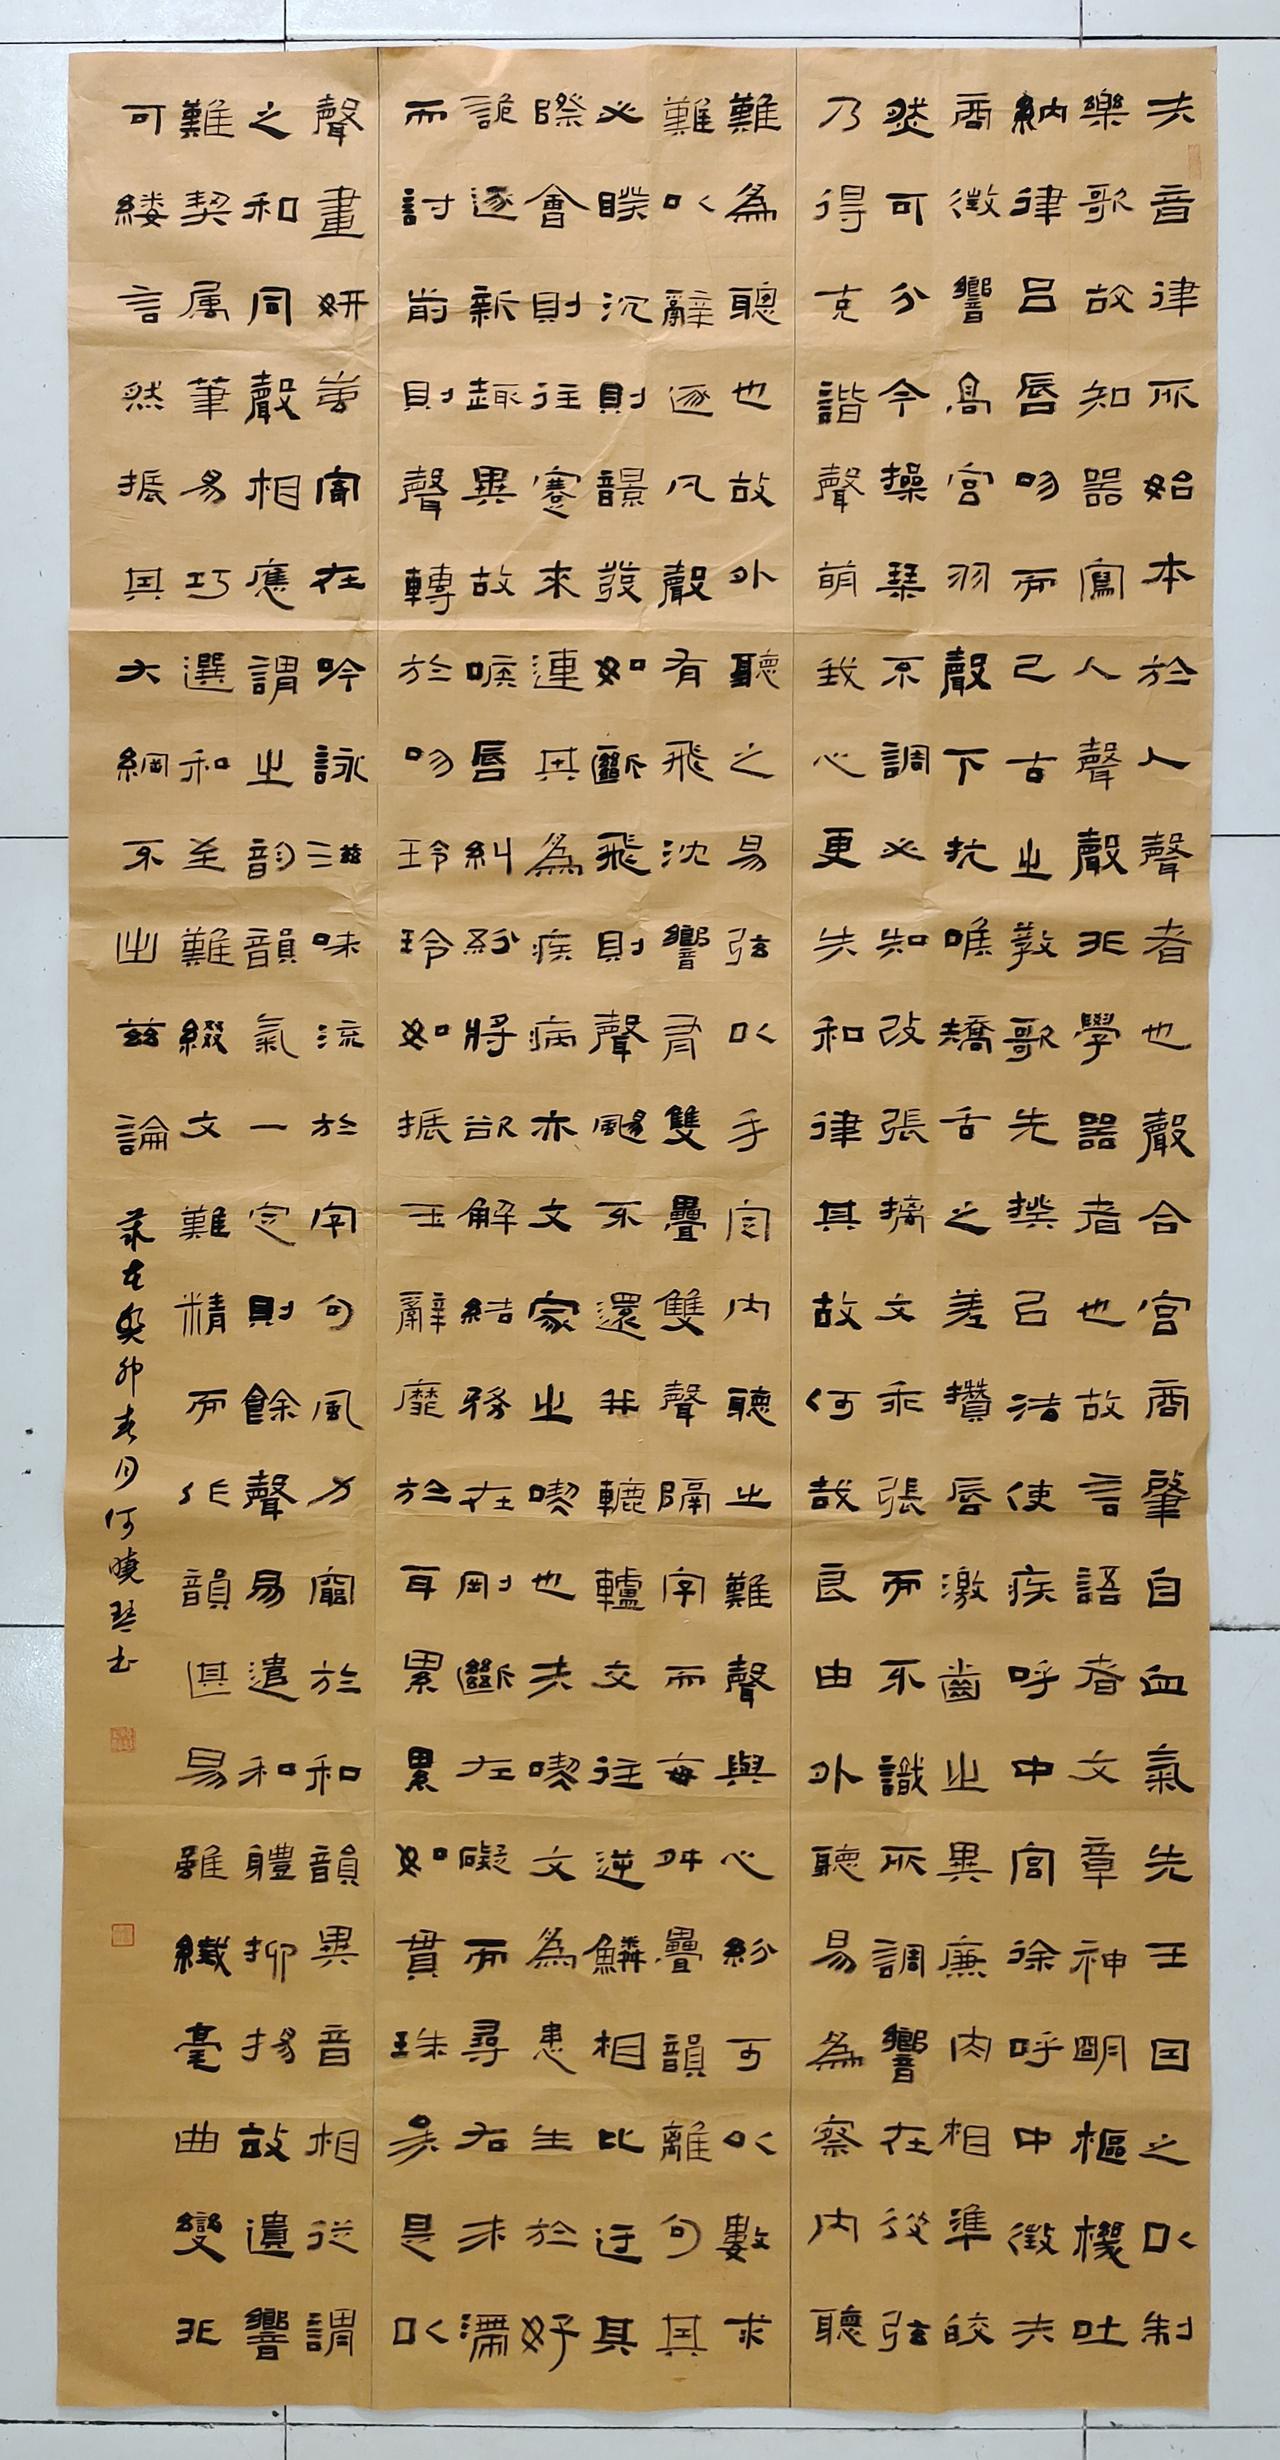 夫音律所始本於人聲者也聲合宮商肇自血氣先王因之以制
樂歌故知器寫人聲聲非學器者也故言語者文章神明樞機吐
納律呂唇吻而已古之教歌先揆以法使疾呼中宮徐呼中徵夫
商徵響高宮羽聲下抗喉矯舌之差攢唇激齒之異廉肉相準皎
然可分今操琴不調必知改張摛文乖張而不識所調響在彼弦
乃得克諧聲萌我心更失和律其故何哉良由外聽易為察內聽
難為聰也故外聽之易弦以手定內聽之難聲與心紛可以數求
難以辭逐凡聲有飛沈響有雙疊雙聲隔字而每舛疊韻離句其
必睽沉則韻發如斷飛則聲颺不還并轆轤交往逆鱗相比迂其
際會則往蹇來連其為疾病亦文家之喫也夫喫文為患生於好
詭逐新趣異故喉唇糾紛將欲解結務在剛斷左礙而尋右末滯
而討前則聲轉於吻玲玲如振玉辭靡於耳累累如貫珠矣是以
聲畫妍蚩寄在吟詠滋味流於字句風力窮於和韻異音相從謂
之和同聲相應謂之韵韻氣一定則餘聲易遣和體抑揚故遺響
難契属筆易巧選和至難綴文難精而作韻甚易雖纖毫曲變非
可縷言然振其大綱不出茲論
癸卯春月何曉琴书